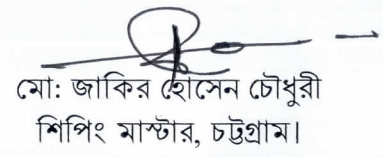 মো: জাকির হোসেন চৌধুরী
শিপিং মাস্টার, চট্টগ্রাম।